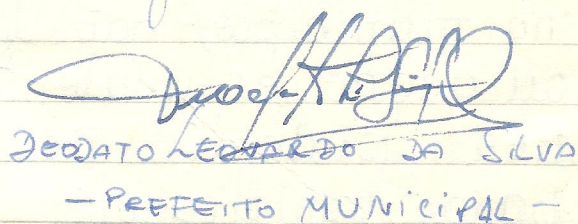 DEODATO LEONARDO DA SILVA
— PREFEITO MUNICIPAL —